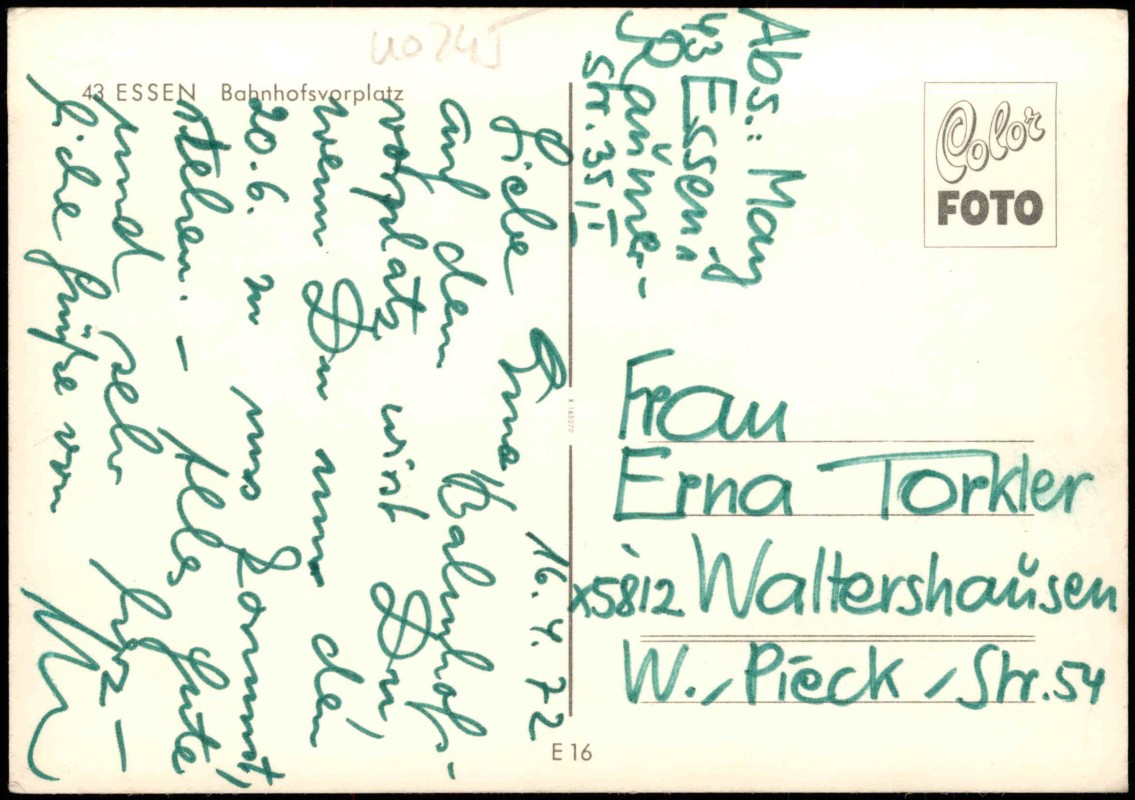 43 ESSEN Bahnhofsvorplatz
Liebe Erna 16.4.72
auf dem Bahnhofs-
vorplatz wirst Du,
wenn Du nun den
20.6. zu uns kommst,
stehen. – Alles Gute
und sehr herz-
liche Grüße von
Abs.: May
43 Essen 1
str. 35 II
Color
FOTO
Frau
Erna Torkler
X5812 Waltershausen
W.-Pieck-Str. 54
E 16